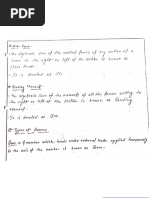 Shear Force
• The algebraic Sum of the vertical forces of any section of a
beam to the right or left of the section is known as
Shear Force.
• It is denoted as SF.
Bending Moment
• The algebraic Sum of the moments of all the forces acting to
the right or left of the section is known as Bending
Moment.
• It is denoted as BM.
Types of Beams
Beam: A member which bends under external loads applied
to the axis of the member is known as Beam.